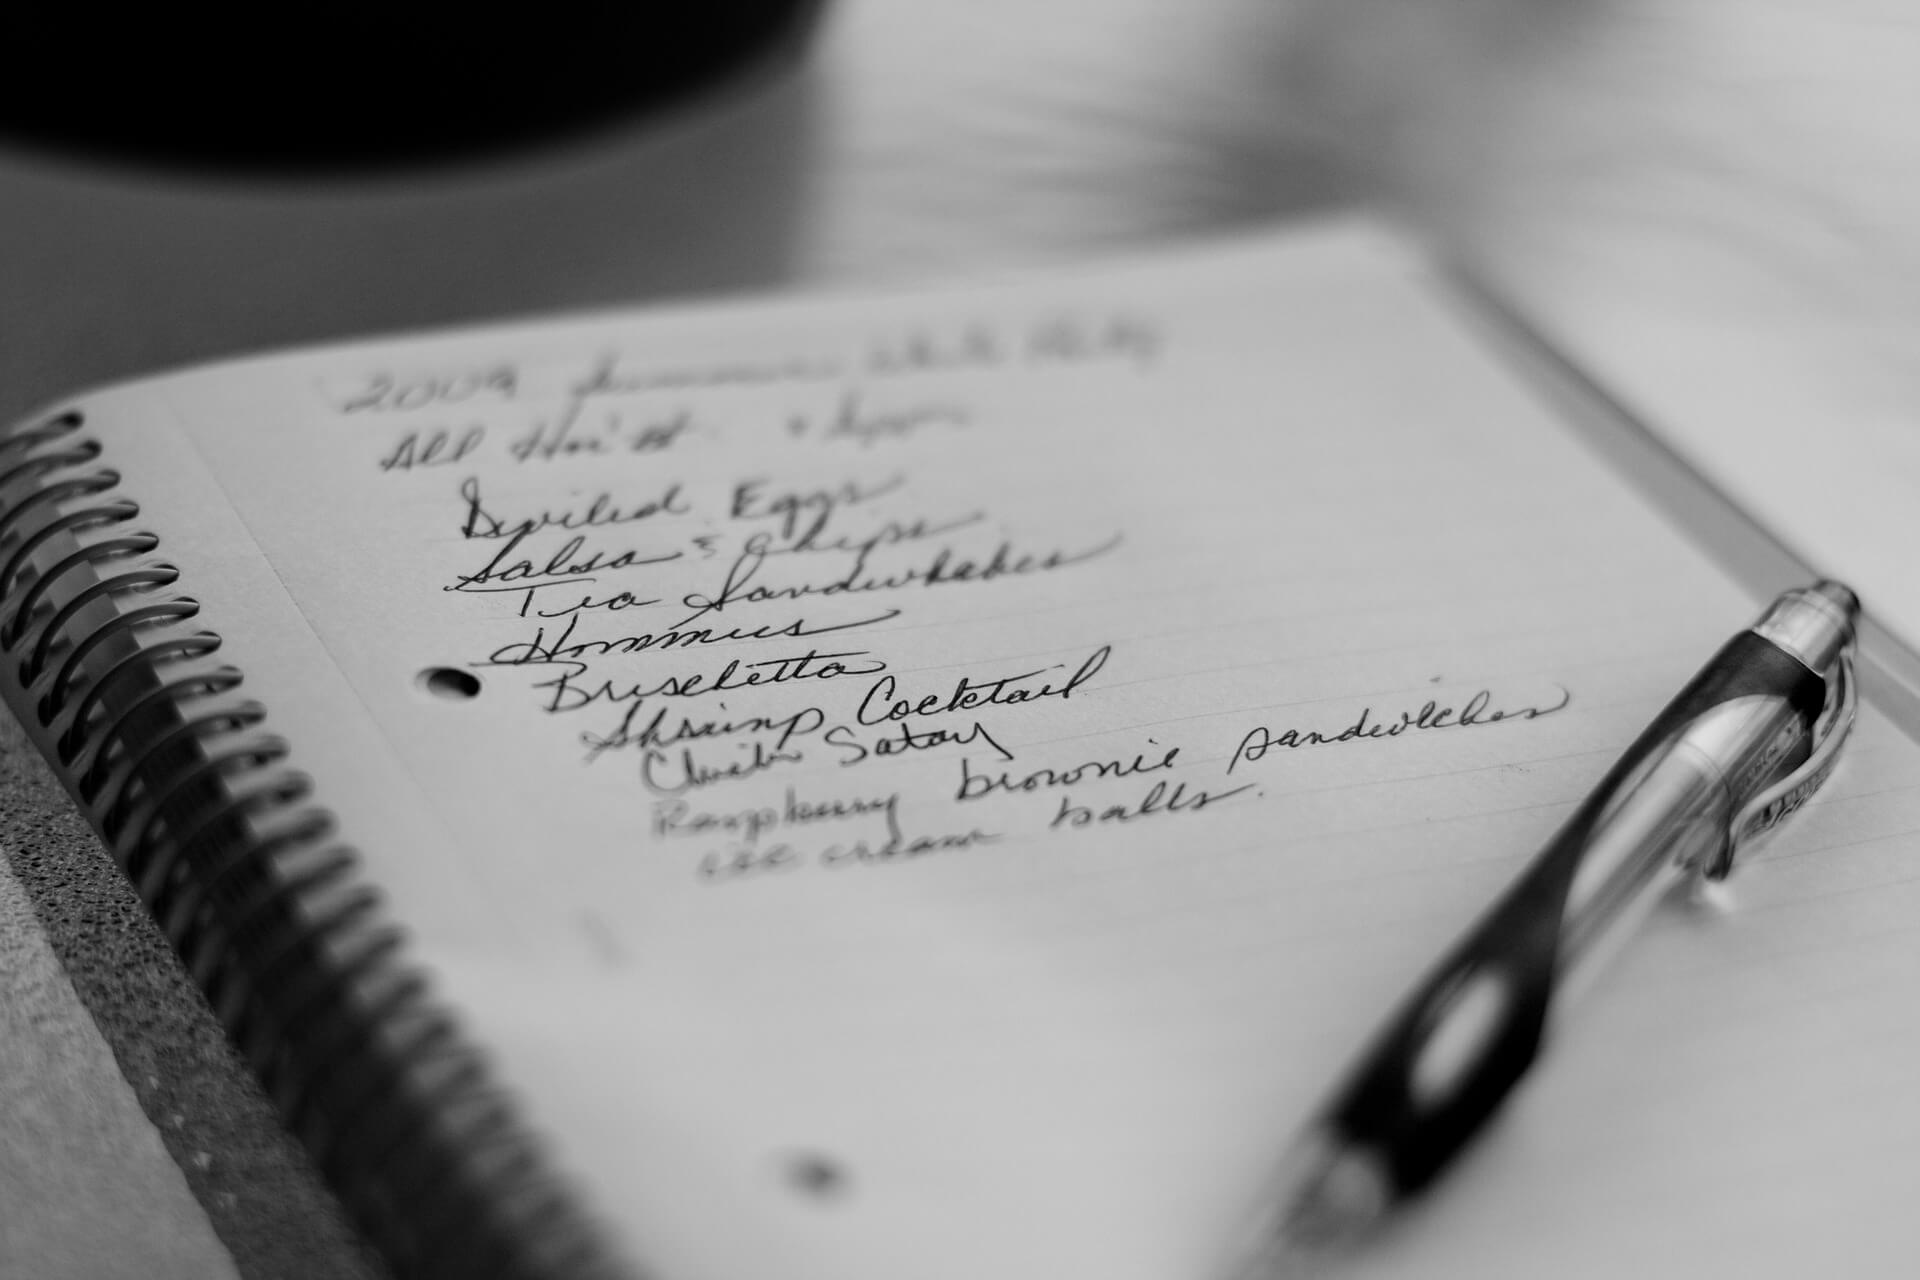 2009 Summer White Party
All Hor'st
Deviled Eggs
Salsa & Chips
Tea Sandwhiches
Hommus
Bruschetta
Shrimp Cocktail
Satay
Raspberry brownie sandwiches
ice cream balls.